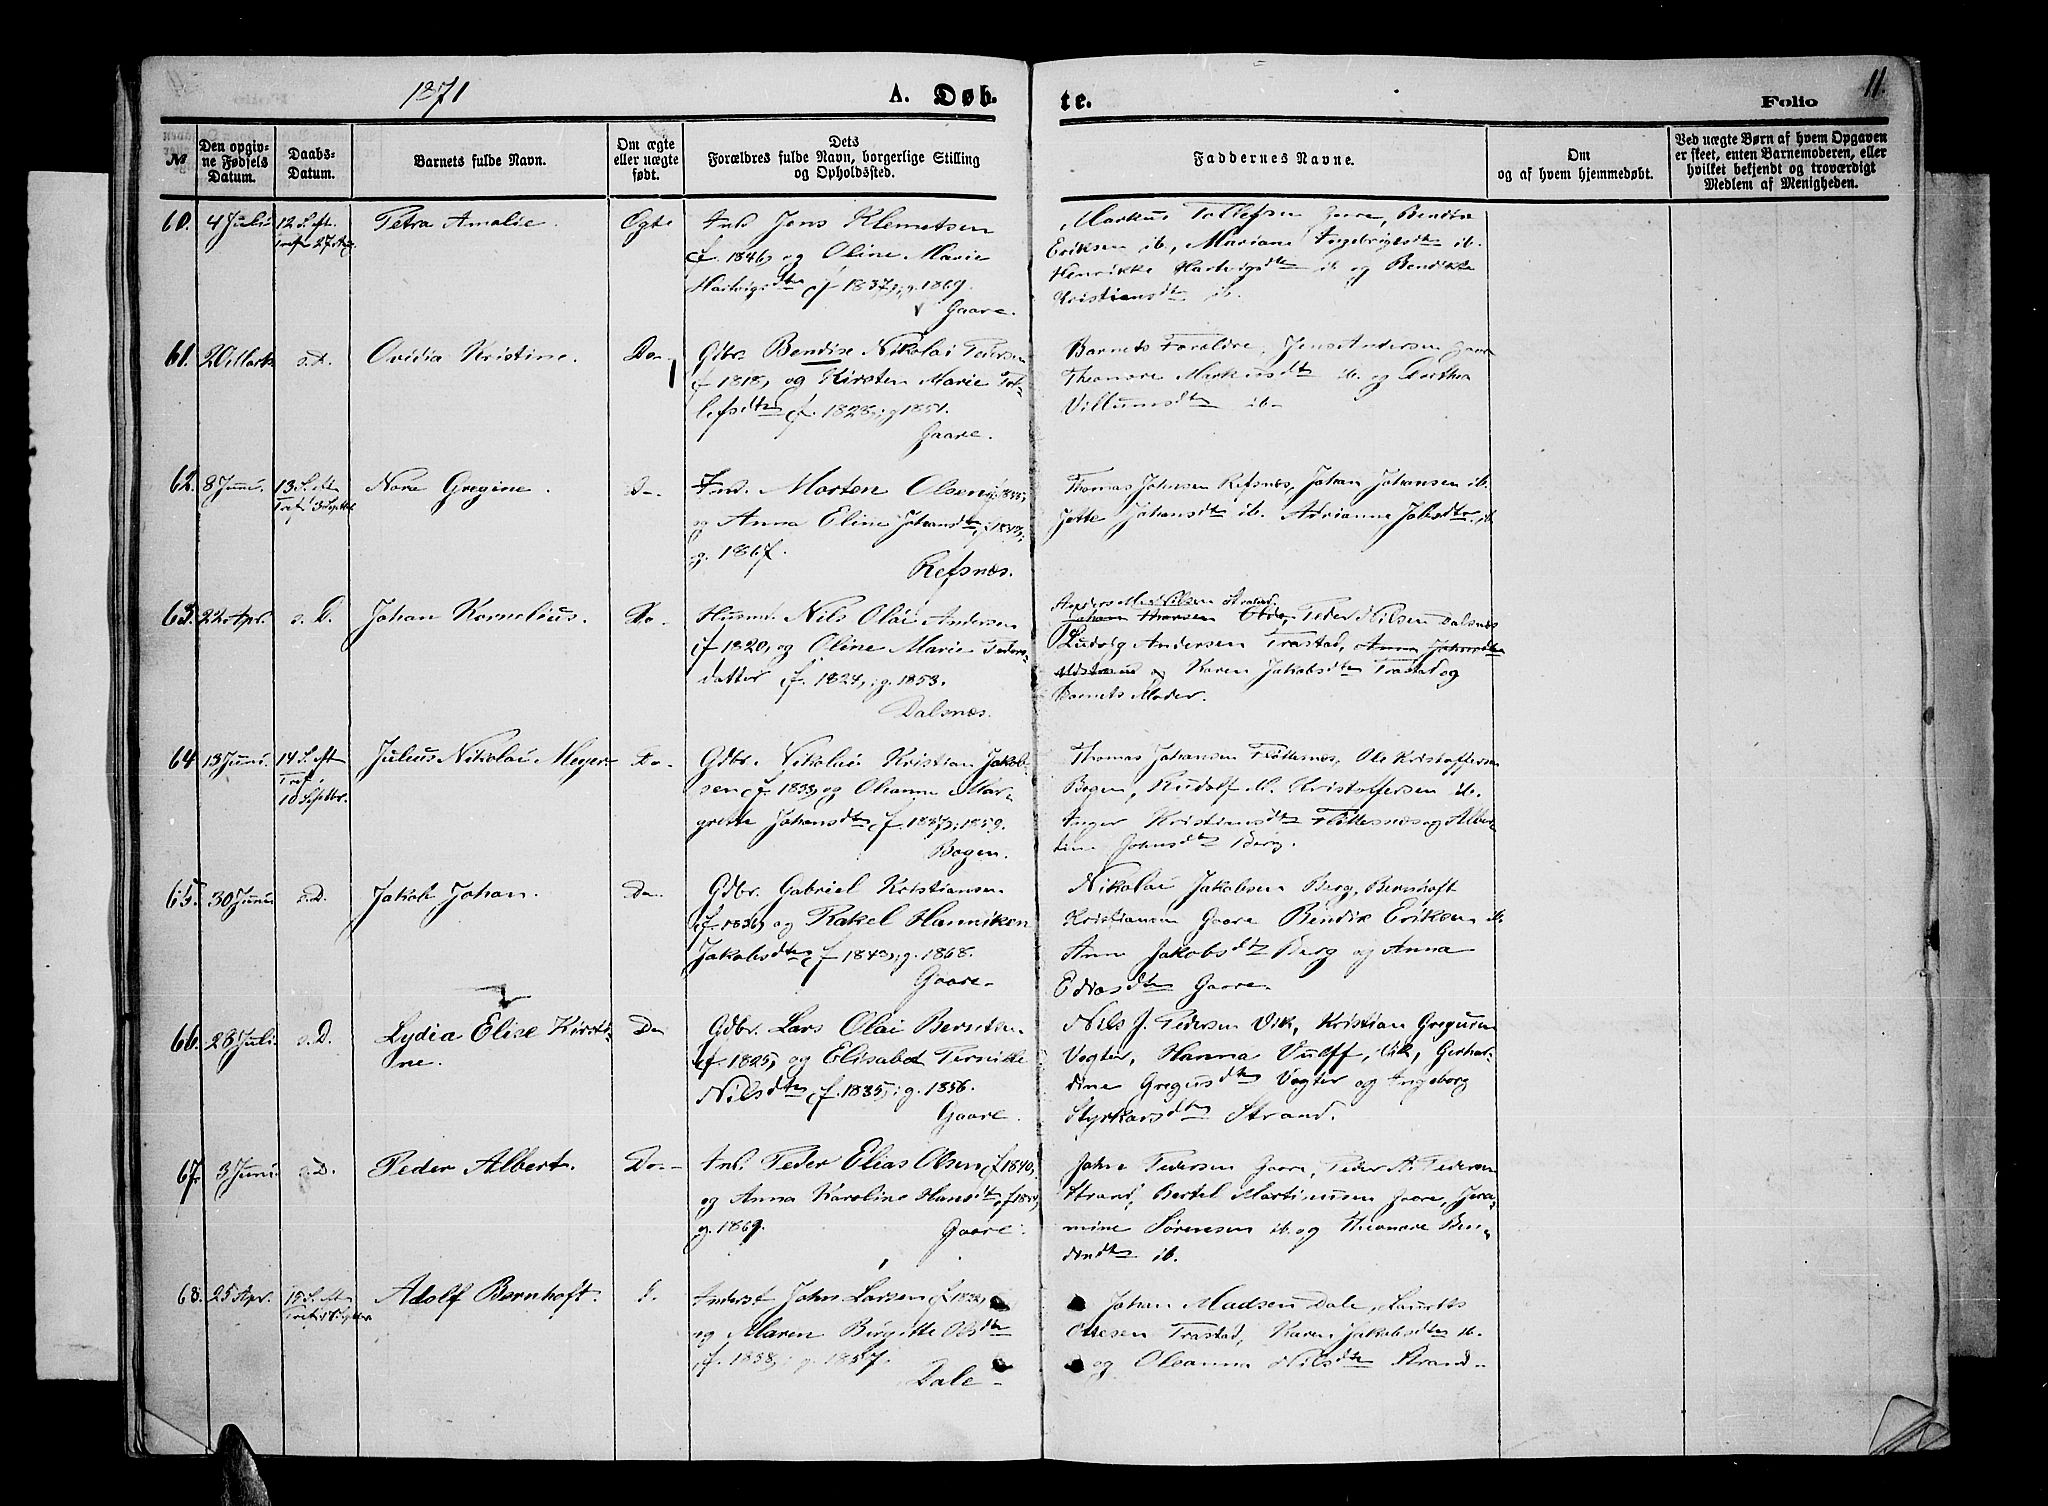 1871
A. Døb. te.
Folio 11.
№
Den opgiv-
ne Fødsels
Datum.
Daabs-
Datum.
Barnets fulde Navn.
Om ægte
eller uægte
født.
Dets
Forældres fulde Navn, borgerlige Stilling
og Opholdssted.
Faddernes Navne.
Om
og af hvem hjemmedøbt.
Ved uægte Børn af hvem Opgaven
er skeet, enten Barnemoderen, eller
hvilket bekjendt og troværdigt
Medlem af Menigheden.
60. 4 Juli 12 S. eft.
Tref. 27 Aug.
Petra Amalie.
Ægte
Ind. Jens Klemetsen
f. 1846, og Oline Marie
Hartvigsdtr f 1837; g. 1869.
Gaare.
Markus Tollefsen Gaare, Bendix
Eriksen ib, Mariane Ingebrigtsdtr ib.
Henrikke Hartvigsdtr ib og Bendikte
Kristiansdtr ib.
61. 20 Marts s.D. Ovidia Kristine. Do
Gdbr. Bendix Nikolai Pedersen
f 1818, og Kirsten Marie Tol-
lefsdtr f. 1828; g 1851.
Gaare.
Barnets Forældre, Jens Andersen Gaare
Theonore Markusdtr ib. og
Villumsdtr ib.
62. 8 Juni. 13 S. eft
Tref. 3 Septbr
Nora Gregine. Do.
Ind. Morten Olsen
og Anna Eline Johansdtr f 1843;
g. 1867.
Refsnæs.
Thomas Johnsen Refsnæs, Johan Johansen ib.
Jette Johansdtr ib. Adrianna Jakobsdtr ib
63. 22 Apr. s.D. Johan Kornelius. Do.
Husmd. Nils Olai Andersen
f 1820, og Oline Marie Peders-
datter f. 1824; g. 1853.
Dalsnæs.
Anders M. Nilsen Strand.
Peder Nilsen Dalsnæs
Ludvig Andersen Trastad,
og Karen Jakobsdtr Trastad og
Barnets Moder.
64 13 Juni. 14 S. eft
Tref.
10 Septbr.
Julius Nikolai Meyer Do.
Gdbr. Nikolai Kristian Jakob-
sen f. 1833, og Oleanna Mar-
grethe Johansdtr f. 1837; g. 1859.
Bogen.
Thomas Johansen Flottesnæs, Ole Kristoffersen
Bogen, Rudolf M. Kristoffersen ib.
Inger Kristiansdtr Flottesnæs og Alber-
tine Johnsdtr Berg.
65. 30 Juni s.D. Jakob Johan. Do.
Gdbr. Gabriel Kristiansen
f. 1836, og Rakel Hanniken
Jakobsdtr f 1843; g. 1868.
Gaare.
Nikolai Jakobsen Berg, Bernhoft
Kristiansen Gaare Bendix Eriksen ib
Ane Jakobsdtr Berg og Anna
Gaare.
66. 28 Juli s.D. Lydia Elise Kirsti-
ne.
Do
Gdbr. Lars Olai Berntsen
f. 1825, og Elisabet Pernille
Nilsdtr f. 1835; g. 1856.
Gaare.
Nils J. Pedersen Vik, Kristian Gregusen
Vogter, Hanna Vulff, Vik, Gerhar-
dine Gregusdtr Vogter og Ingeborg
Styrkarsdtr Strand.
67. 3 Juni s.D. Peder Albert. Do.
Ind. Peder Elias Olsen f 1840,
og Anna Karoline Hansdtr
g. 1869.
Gaare.
Johan Pedersen Gaare, Peder A. Pedersen
Strand, Bertel Martinusen Gaare, Jera-
mine Sørensen ib. og Theonore Ben-
ib.
68. 25 Apr. 15 S. eft
Tref. 17 Septbr
Adolf Bernhoft.
Inderst John Larsen f. 1832,
og Maren Birgitte Olsdtr
f. 1838; g. 1857.
Dale.
Johan Madsen Dale, Laurits
Olesen Trastad, Karen Jakobsdtr ib.
og Oleanna Nilsdtr Strand.